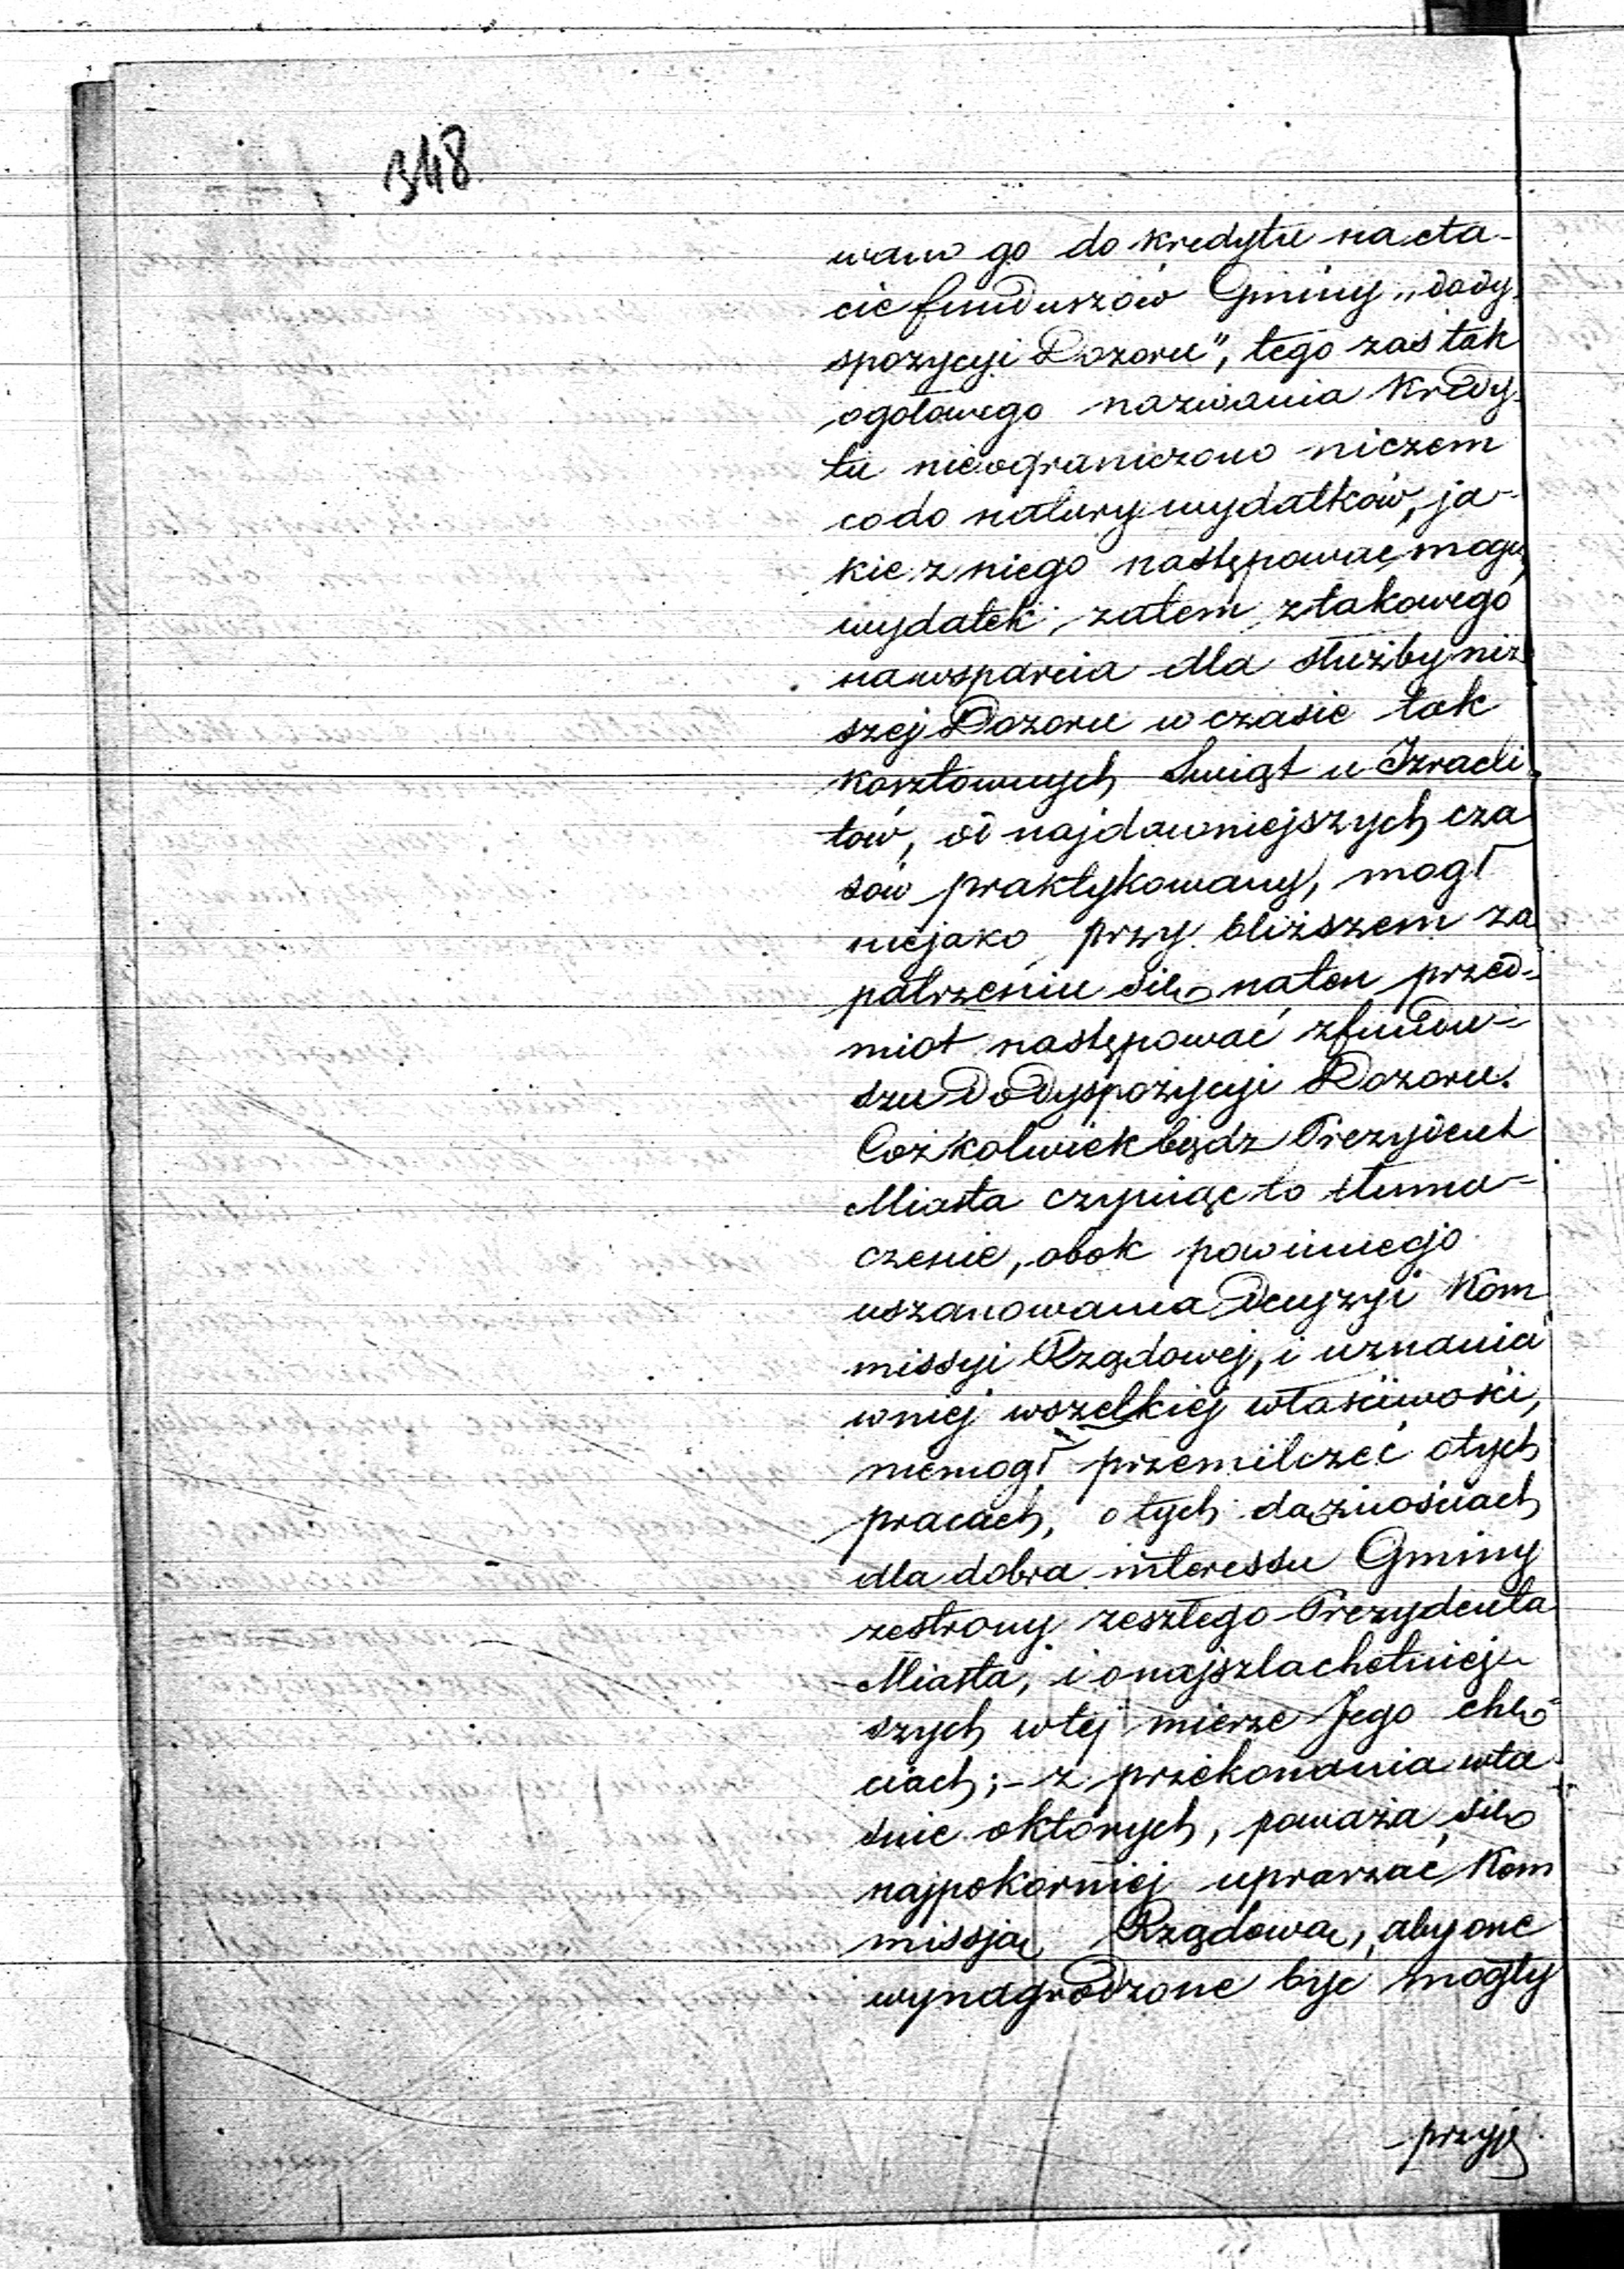 348
wano go do kredytu na eta-
cie funduszów Gminy „do dy-
spozycyi Dozoru", tego zaś tak
ogołowego nazwania kredy-
tu nieograniczono niczem
co do natury wydatków, ja-
kie z niego następować mogą,
wydatek zatem z takowego
na wsparcia dla służby niż
szej Dozoru w czasie tak
kosztownych Swiąt u Izraeli-
tów, od najdawniejszych cza
sów praktykowany, mogł
niejako przy bliższem za
patrzeniu się na ten przed-
miot następować z fundu-
szu do Dyspozycyi Dozoru.
Cożkolwiekbądz Prezydent
Miasta czyniąc to tłuma-
czenie, obok powinnego
uszanowania Decyzyi Kom
missyi Rządowej, i uznania
w niej wszelkiej własciwości,
niemogł przemilczeć o tych
pracach, o tych dążnościach
dla dobra interessu Gminy
ze strony zeszłego Prezydenta
Miasta, i o najszlachetniej-
szych w tej mierze Jego chę-
ciach; - z przekonania wła
snie o których, poważa się
najpokorniej upraszać Kom
missją Rządową, aby one
wynagrodzone być mogły
przyję